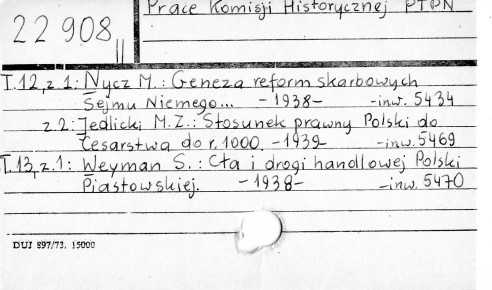 Prace Komisji Historycznej PTPN
22 908 II
T.12, z.1: Nycz M.: Geneza reform skarbowych
Sejmu Niemego... -1938- -inw. 5434
z.2: Jedlicki M.Z.: Stosunek prawny Polski do
Cesarstwa do r. 1000. -1939- -inw. 5469
T.13, z.1: Weyman S.: Cła i drogi handlowej Polski
Piastowskiej. -1938- -inw. 5470
DUJ 897/73. 15000